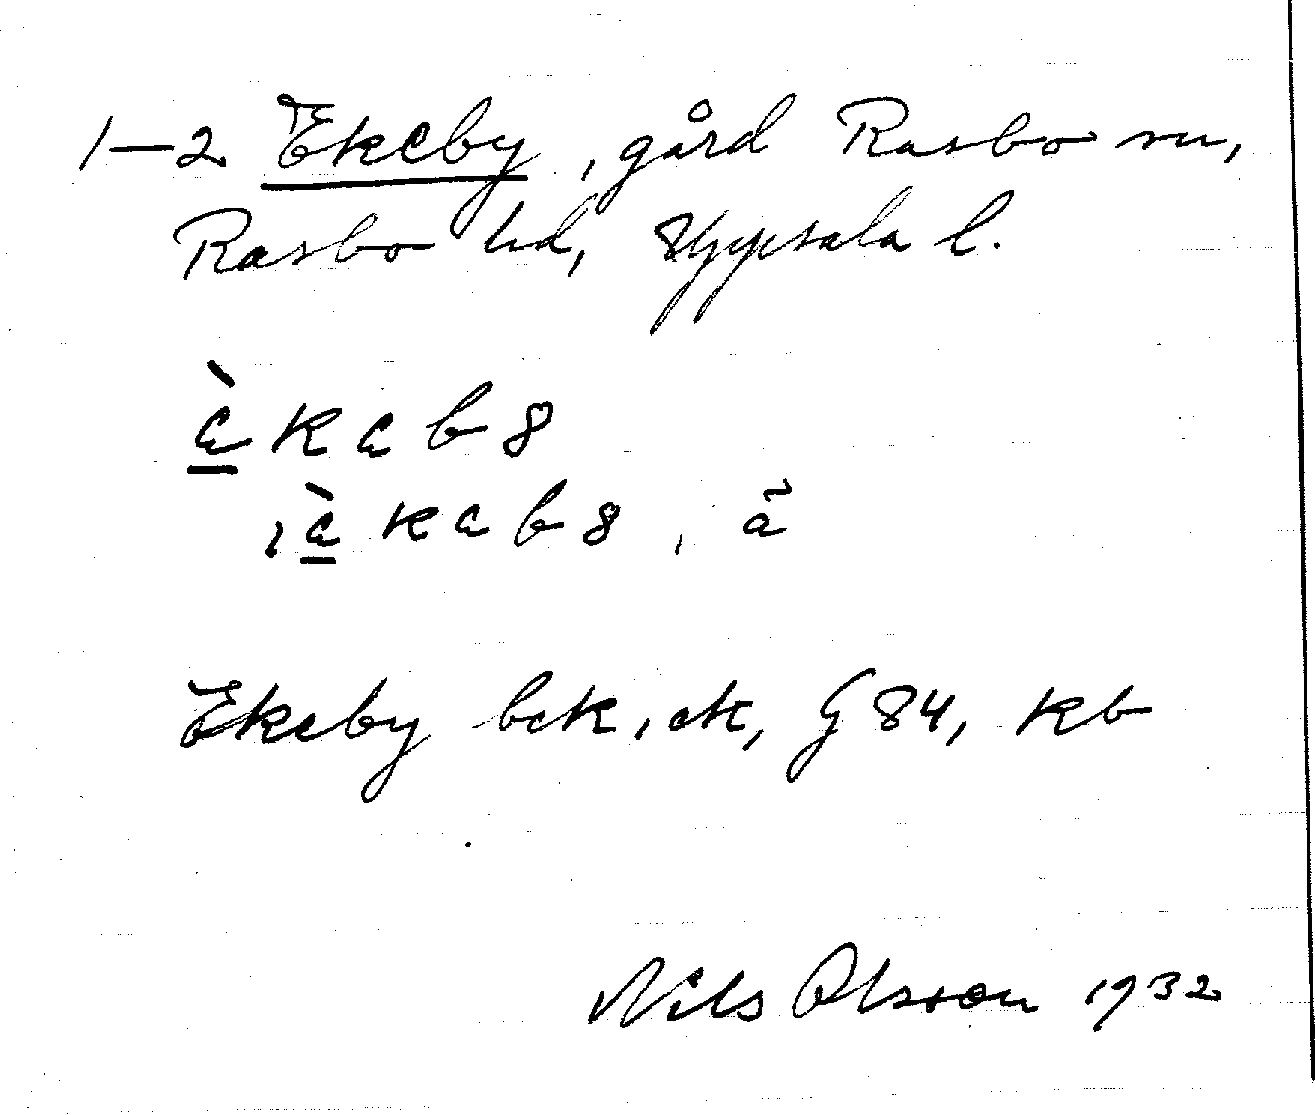 1–2 Ekeby, gård Rasbo sn,
Rasbo hd, Uppsala l.
Ekeby bek, ek, G 84, kb
Nils Olsson 1932